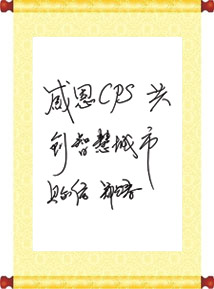 感恩CPS 共
创智慧城市